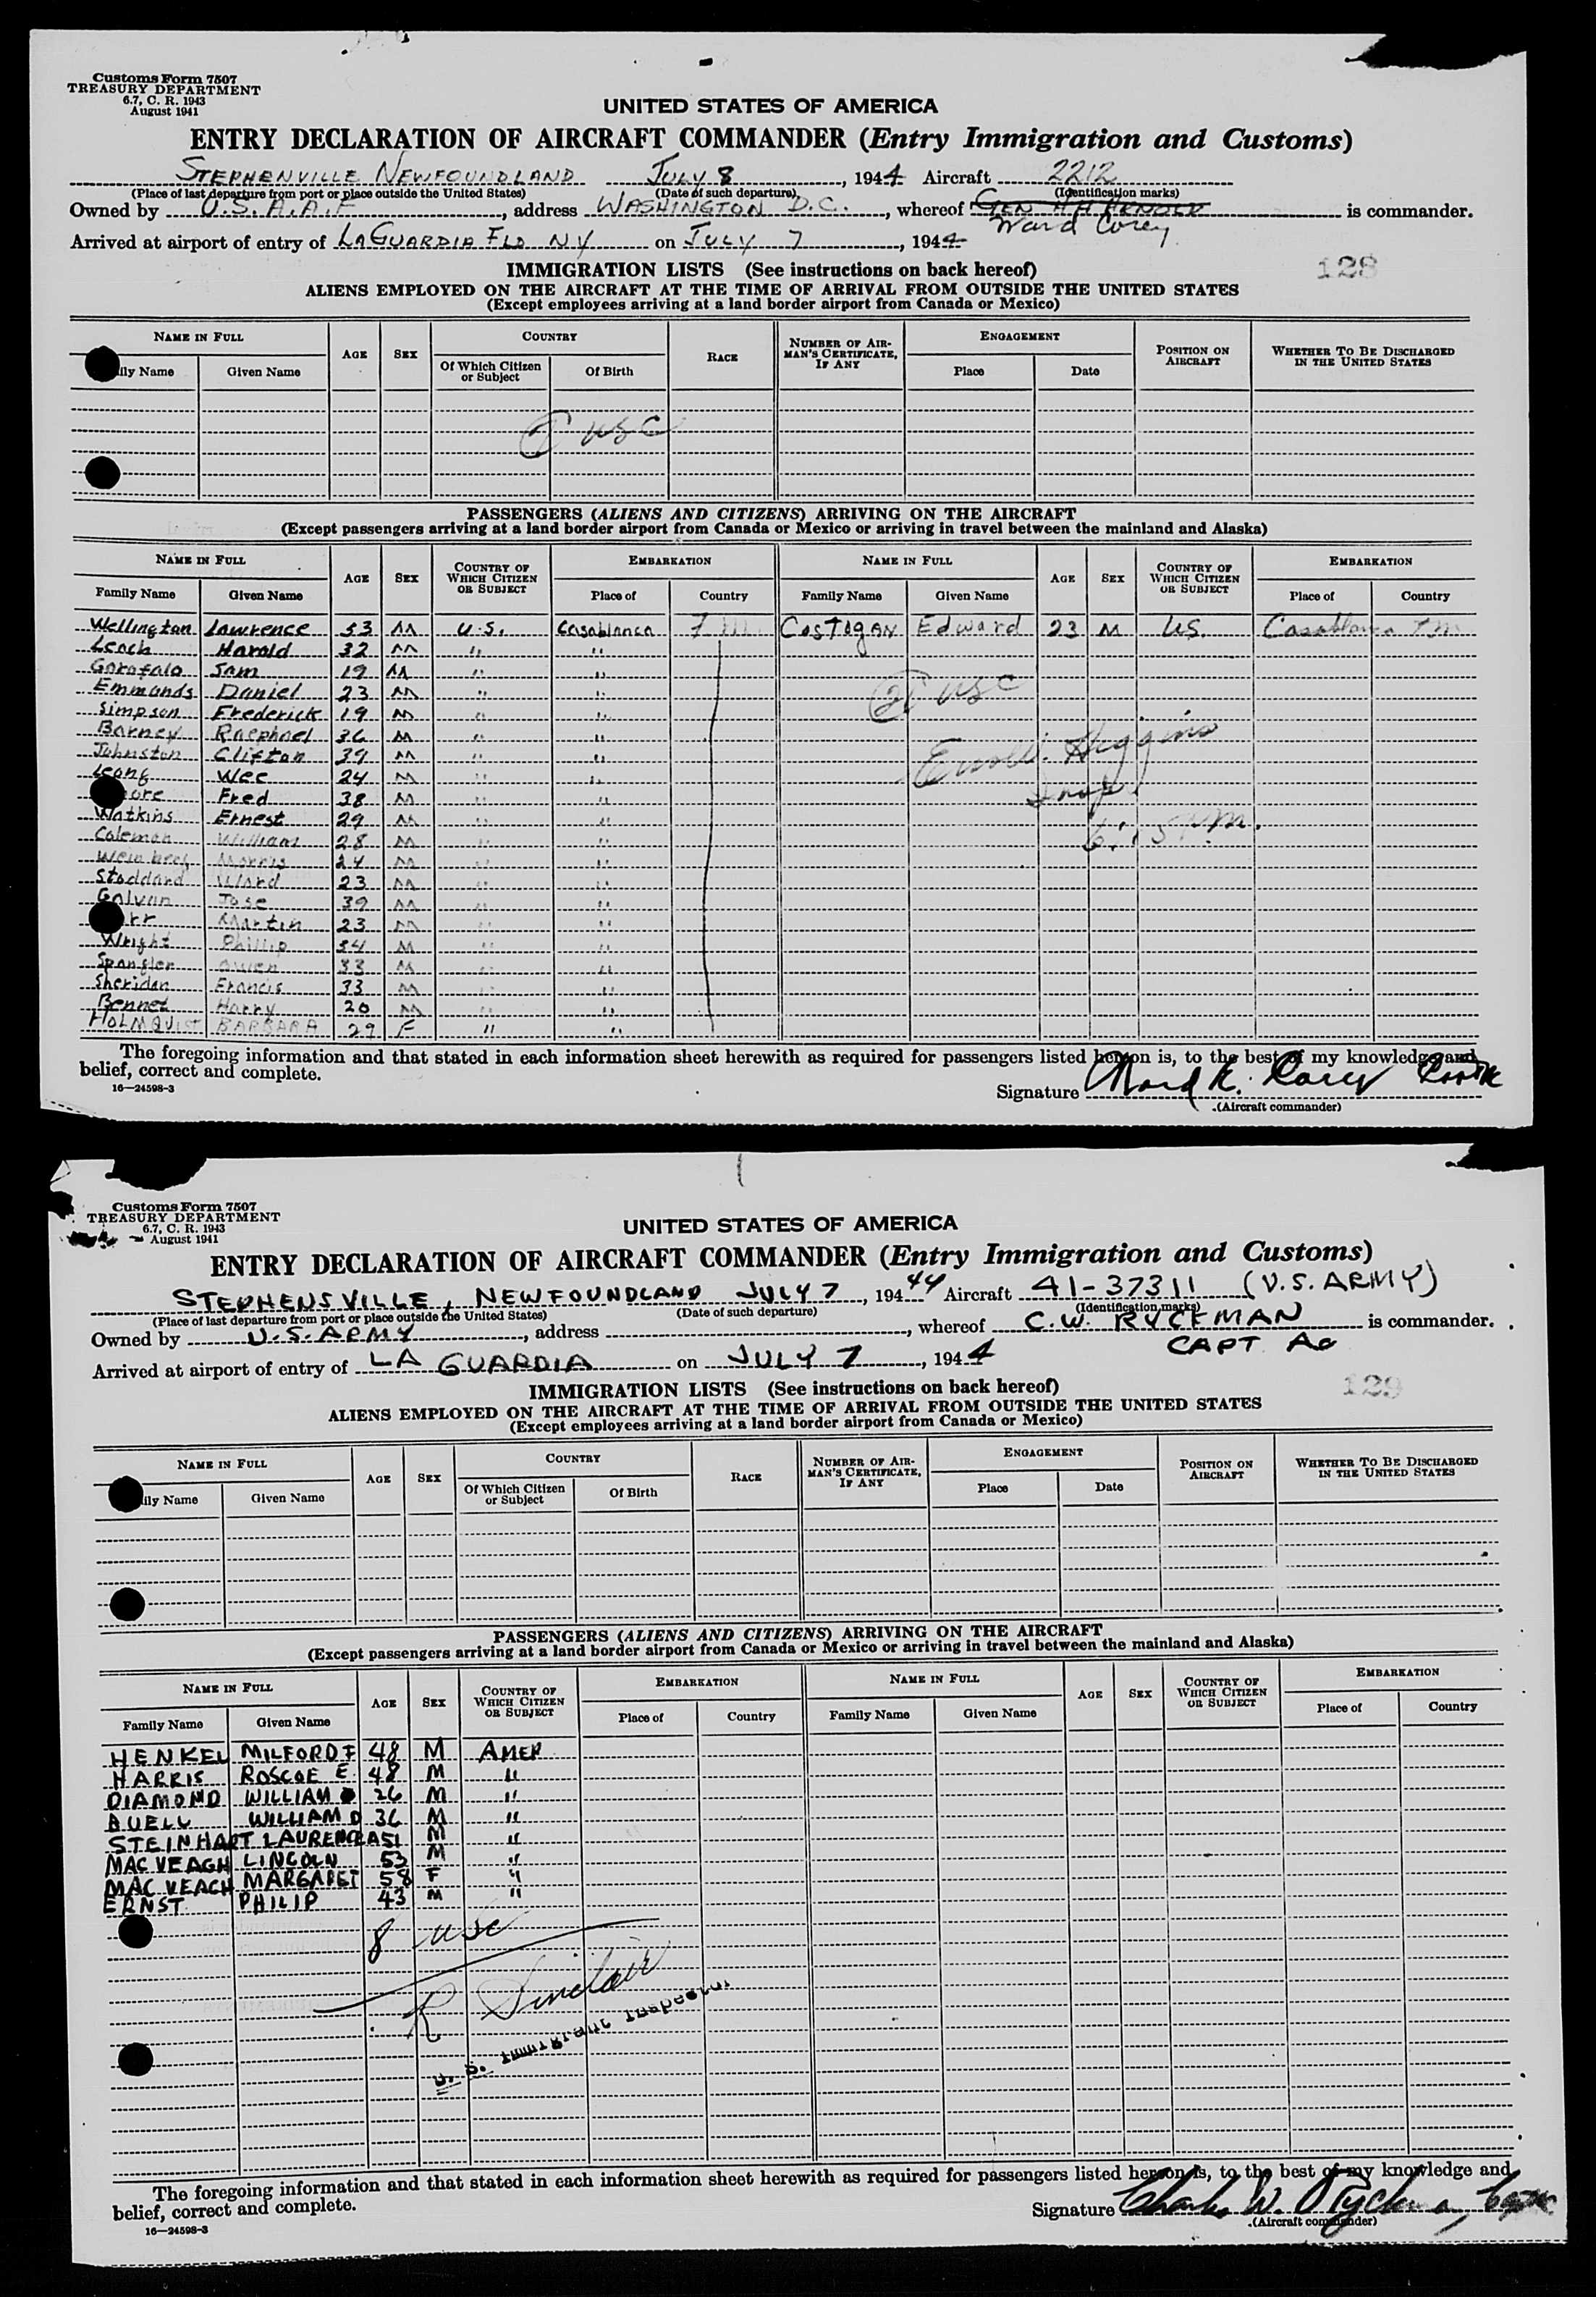 Customs Form 7507
TREASURY DEPARTMENT
6.7, C. R. 1943
August 1941
UNITED STATES OF AMERICA
ENTRY DECLARATION OF AIRCRAFT COMMANDER (Entry Immigration and Customs)
STEPHENVILLE NEWFOUNDLAND JULY 8, 1944 Aircraft 2212
(Place of last departure from port or place outside the United States) (Date of such departure) (Identification marks)
Owned by U.S.A.A.F, address WASHINGTON D.C., whereof GEN H H ARNOLD is commander.
Ward Corey
Arrived at airport of entry of LAGUARDIA FLD NY on JULY 7, 1944
128
IMMIGRATION LISTS (See instructions on back hereof)
ALIENS EMPLOYED ON THE AIRCRAFT AT THE TIME OF ARRIVAL FROM OUTSIDE THE UNITED STATES
(Except employees arriving at a land border airport from Canada or Mexico)
NAME IN FULL AGE SEX COUNTRY RACE NUMBER OF AIRMAN'S CERTIFICATE, IF ANY ENGAGEMENT POSITION ON AIRCRAFT WHETHER TO BE DISCHARGED IN THE UNITED STATES
ily Name Given Name Of Which Citizen or Subject Of Birth Place Date
USC
PASSENGERS (ALIENS AND CITIZENS) ARRIVING ON THE AIRCRAFT
(Except passengers arriving at a land border airport from Canada or Mexico or arriving in travel between the mainland and Alaska)
NAME IN FULL AGE SEX COUNTRY OF WHICH CITIZEN OR SUBJECT EMBARKATION NAME IN FULL AGE SEX COUNTRY OF WHICH CITIZEN OR SUBJECT EMBARKATION
Family Name Given Name Place of Country Family Name Given Name Place of Country
Wellington Lawrence 53 M U.S. Casablanca F.M. COSTOGAN Edward 23 M US. Casablanca F.M.
Leach Harold 32 M " "
Garofalo Sam 19 M " "
Emmonds Daniel 23 M " "
Simpson Frederick 19 M " "
21 USC
Barney Raephael 36 M " "
Johnston Clifton 39 M " "
Higgins
Leong Wee 24 M " "
ore Fred 38 M " "
Insp.
Watkins Ernest 29 M " "
Coleman William 28 M " "
Morris 24 M " "
Stoddard Ward 23 M " "
Galvan Jose 39 M " "
rr Martin 23 M " "
Wright Phillip 34 M " "
Spangler Owen 33 M " "
Sheridan Francis 33 M " "
Bennet Harry 20 M " "
HOLMQUIST BARBARA 29 F " "
The foregoing information and that stated in each information sheet herewith as required for passengers listed hereon is, to the best of my knowledge and
belief, correct and complete.
16—24598-3
Signature Ward K. Corey
(Aircraft commander)
Customs Form 7507
TREASURY DEPARTMENT
6.7, C. R. 1943
August 1941
UNITED STATES OF AMERICA
ENTRY DECLARATION OF AIRCRAFT COMMANDER (Entry Immigration and Customs)
STEPHENSVILLE, NEWFOUNDLAND JULY 7, 1944 Aircraft 41-37311 (U.S. ARMY)
(Place of last departure from port or place outside the United States) (Date of such departure) (Identification marks)
Owned by U.S. ARMY, address, whereof C.W. RYCKMAN is commander.
CAPT AC
Arrived at airport of entry of LA GUARDIA on JULY 7, 1944
129
IMMIGRATION LISTS (See instructions on back hereof)
ALIENS EMPLOYED ON THE AIRCRAFT AT THE TIME OF ARRIVAL FROM OUTSIDE THE UNITED STATES
(Except employees arriving at a land border airport from Canada or Mexico)
NAME IN FULL AGE SEX COUNTRY RACE NUMBER OF AIRMAN'S CERTIFICATE, IF ANY ENGAGEMENT POSITION ON AIRCRAFT WHETHER TO BE DISCHARGED IN THE UNITED STATES
ily Name Given Name Of Which Citizen or Subject Of Birth Place Date
PASSENGERS (ALIENS AND CITIZENS) ARRIVING ON THE AIRCRAFT
(Except passengers arriving at a land border airport from Canada or Mexico or arriving in travel between the mainland and Alaska)
NAME IN FULL AGE SEX COUNTRY OF WHICH CITIZEN OR SUBJECT EMBARKATION NAME IN FULL AGE SEX COUNTRY OF WHICH CITIZEN OR SUBJECT EMBARKATION
Family Name Given Name Place of Country Family Name Given Name Place of Country
HENKEL MILFORD F 48 M AMER
HARRIS ROSCOE E. 48 M "
DIAMOND WILLIAM 26 M "
BUELL WILLIAM D 36 M "
STEINHART LAURENCE A 51 M "
MAC VEAGH LINCOLN 53 M "
MAC VEAGH MARGARET 58 F "
ERNST PHILIP 43 M "
8 USC
R Sinclair
U. S. Immigrant Inspector
The foregoing information and that stated in each information sheet herewith as required for passengers listed hereon is, to the best of my knowledge and
belief, correct and complete.
16—24598-3
Signature Charles W. Ryckman, Capt AC
(Aircraft commander)